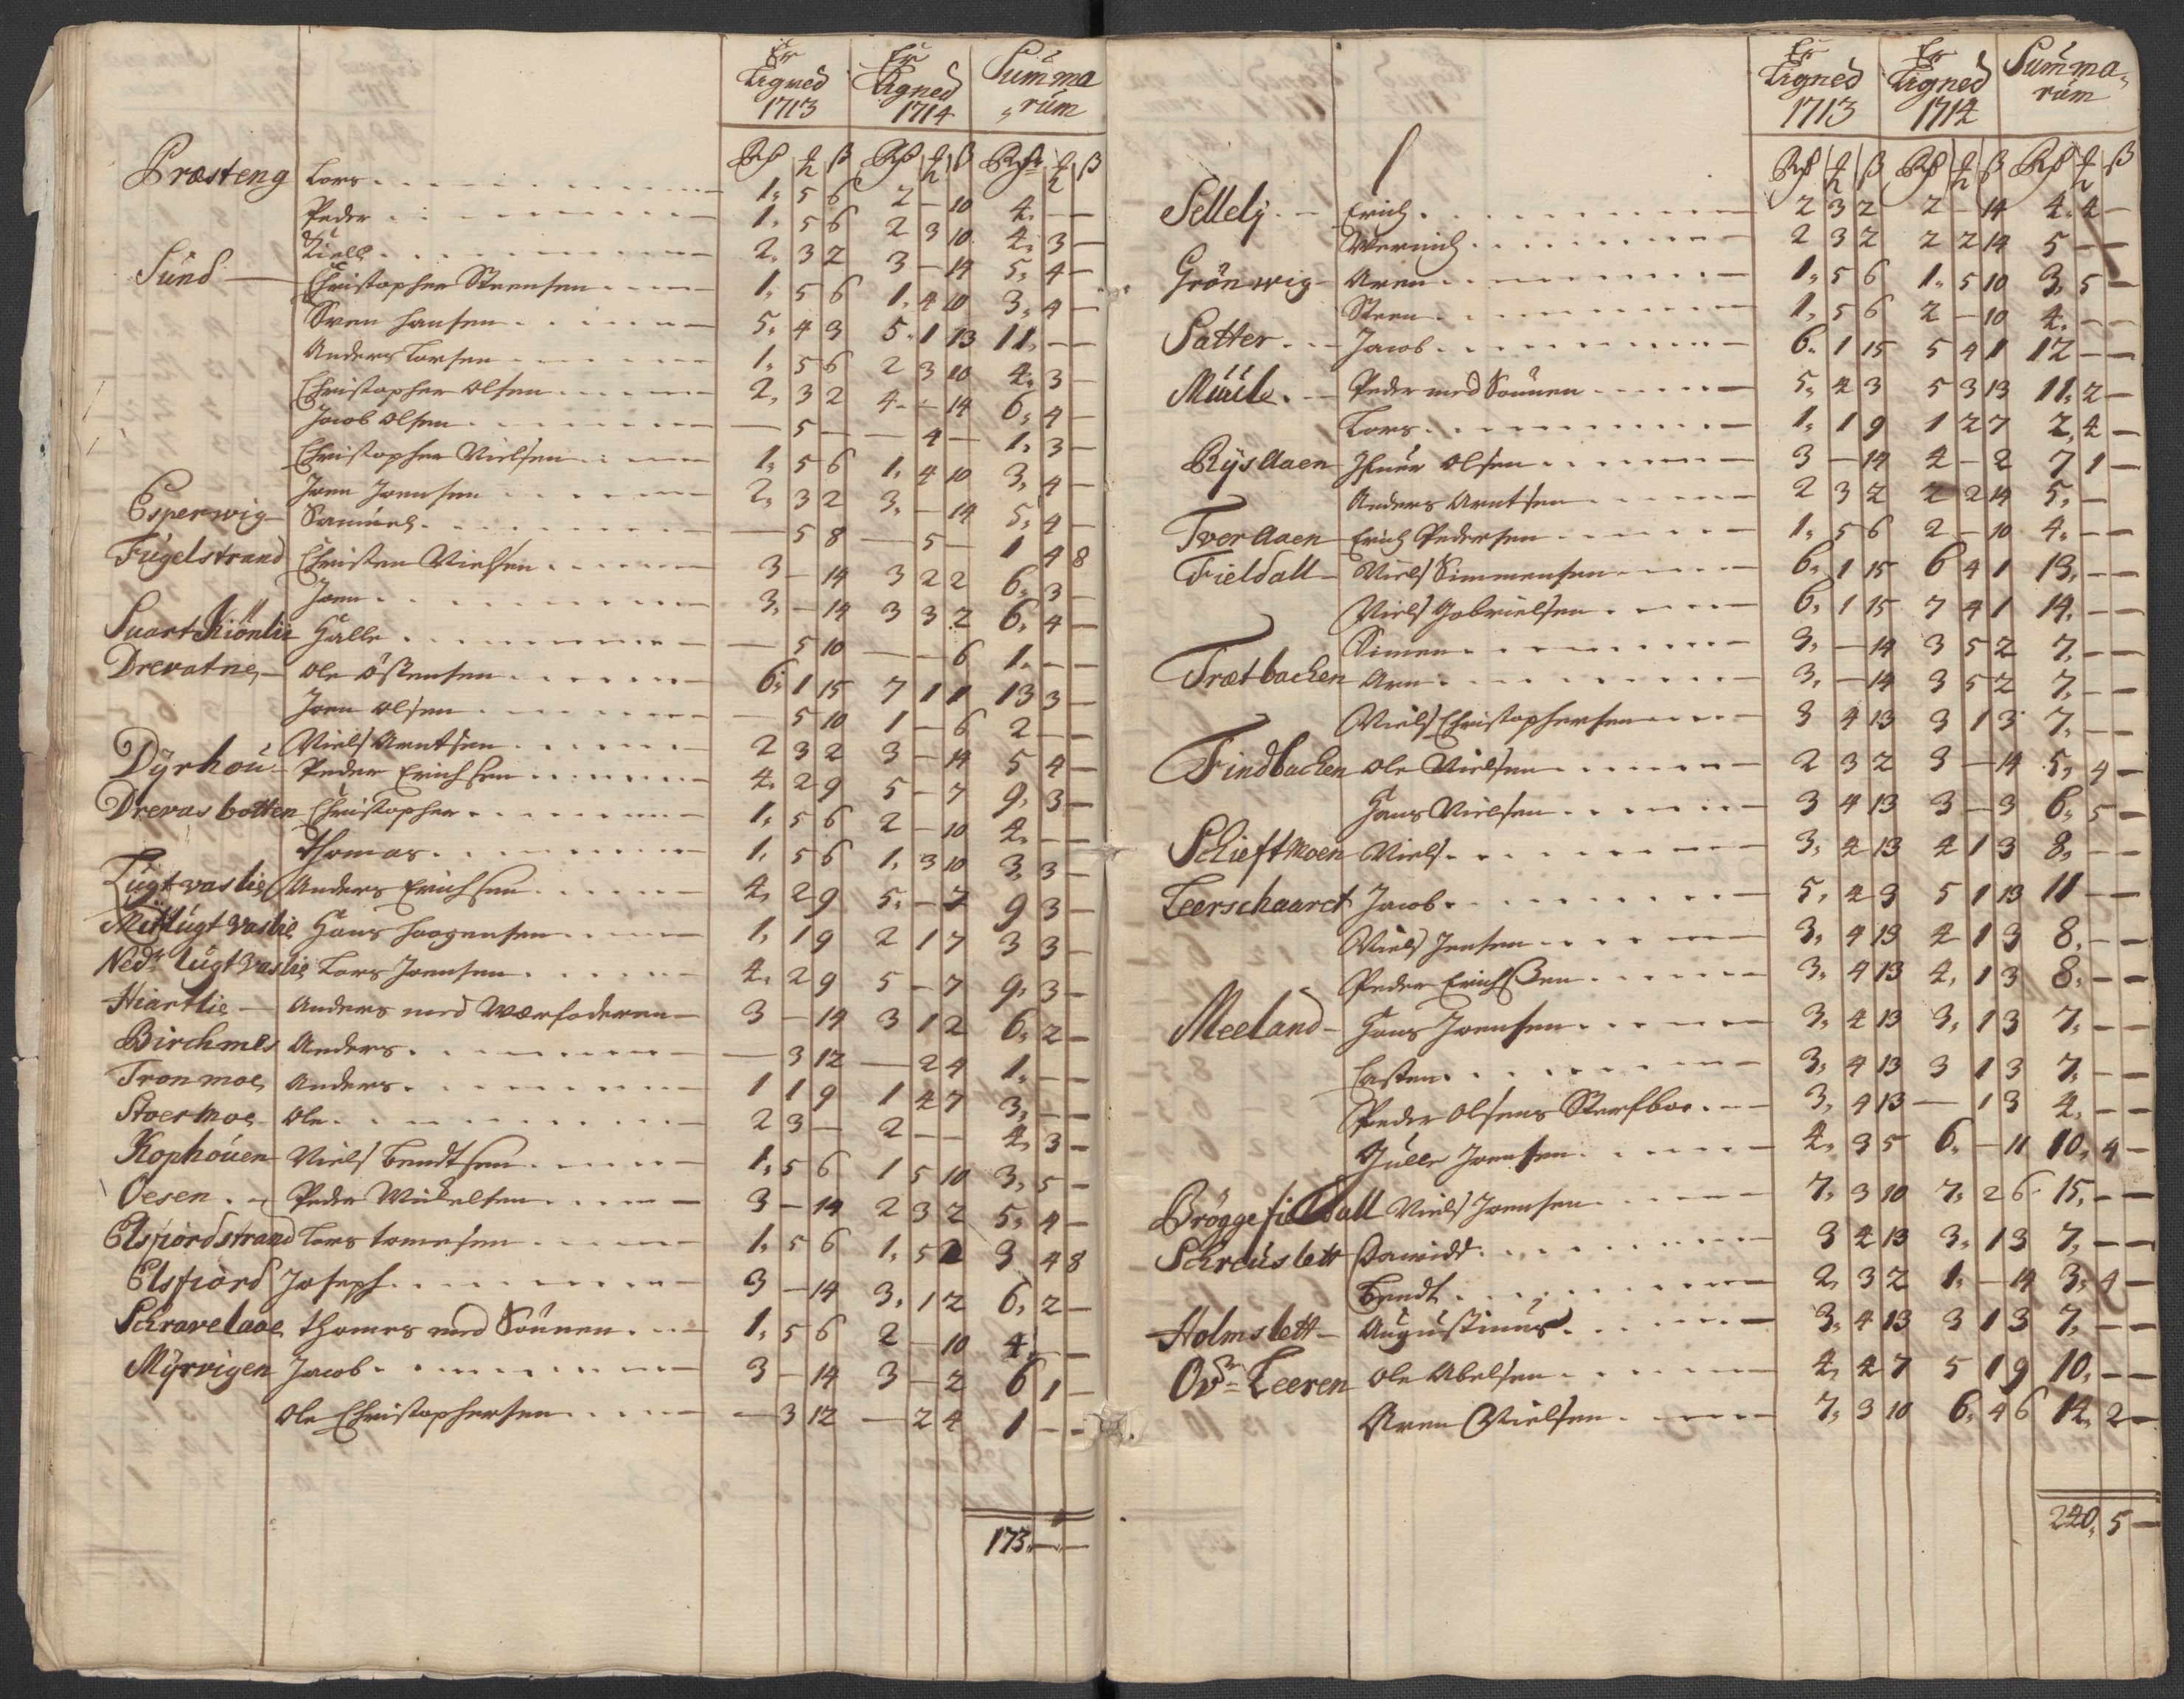 Er Ligned 1713 Er Ligned 1714 Summa„rum
Rdr ₰ ß Rdr ₰ ß Rdr ₰ ß
Præsteng Lars 1. 5 6 2 — 10 4. — —
Peder 1. 5 6 2 3 10 4. 3 —
Kield 2. 3 2 3 — 14 5. 4 —
Sund Christopher Steensen 1. 5 6 1. 4 10 3. 4 —
Sven Hansen 5. 4 3 5. 1 13 11. — —
Anders Larsen 1. 5 6 2 3 10 4. 3 —
Christopher Olsen 2. 3 2 4. — 14 6. 4 —
Jacob Olsen — 5 — — 4 — 1. 3 —
Christopher Nielsen 1. 5 6 1. 4 10 3. 4 —
Joen Joensen 2. 3 2 3. — 14 5. 4 —
Esperwig Samuel — 5 8 — 5 — 1 4 8
Fugelstrand Christen Nielsen 3 — 14 3 2 2 6. 3 —
Joen 3. — 14 3 3 2 6. 4 —
Suartkiönlie Halle — 5 10 — — 6 1. — —
Drevatne Ole Östensen 6. 1 15 7 1 1 13 3 —
Joen Olsen — 5 10 1 — 6 2 — —
Niels Arntsen 2 3 2 3 — 14 5 4 —
Dyrhou Peder Erichsen 4. 2 9 5 — 7 9. 3 —
Drevasbotten Christopher 1. 5 6 2 — 10 4. — —
Thomas 1. 5 6 1. 3 10 3. 3 —
Lugtvaslie Anders Erichsen 4. 2 9 5. — 7 9 3 —
Mitlugtvaslie Hans Haagensen 1. 1 9 2 1 7 3 3 —
Nedr Lugtvaslie Lars Joensen 4. 2 9 5 — 7 9. 3 —
Hiartlie Anders med Værfaderen 3 — 14 3 1 2 6. 2 —
Birchmes Anders — 3 12 — 2 4 1. — —
Tronmoe Anders 1 1 9 1 4 7 3. — —
Stoermoe Ole 2 3 — 2 — — 4. 3 —
Kophouen Niels Bendtsen 1. 5 6 1 5 10 3. 5 —
Oesen Peder Mickelsen 3 — 14 2 3 2 5. 4 —
Elsfiordstrand Lars Tomesen 1. 5 6 1. 5 2 3 4 8
Elsfiord Joseph 3 — 14 3. 1 2 6. 2 —
Schravelaae Thomes med Sönnen 1. 5 6 2 — 10 4. — —
Myrvigen Jacob 3 — 14 3 — 2 6 1 —
Ole Christophersen — 3 12 — 2 4 1 — —
173. — —
Er Ligned 1713 Er Ligned 1714 Summa„rum
Rdr ₰ ß Rdr ₰ ß Rdr ₰ ß
Sellely Erich 2 3 2 2 — 14 4. 4 —
Wernich 2 3 2 2 2 14 5 — —
Grönwig Aren 1. 5 6 1. 5 10 3. 5 —
Steen 1. 5 6 2 — 10 4. — —
Satter Jacob 6. 1 15 5 4 1 12 — —
Muule Peder med Sönnen 5. 4 3 5 3 13 11. 2 —
Lars 1. 1 9 1 2 7 2. 4 —
Rysaaen Ifuer Olsen 3 — 14 4 — 2 7 1 —
Anders Arntsen 2 3 2 2 2 14 5. —
Tveraaen Erich Pedersen 1. 5 6 2 — 10 4. — —
Fieldall Niels Simmensen 6. 1 15 6 4 1 13. — —
Niels Gabrielsen 6. 1 15 7 4 1 14. — —
Simen 3. — 14 3 5 2 7. — —
Trætbachen Arn 3. — 14 3 5 2 7. — —
Niels Christophersen 3 4 13 3 1 3 7. — —
Findbachen Ole Nielsen 2 3 2 3 — 14 5. 4 —
Hans Nielsen 3 4 13 3 — 3 6. 5 —
Schieftmoen Niels 3. 4 13 4 1 3 8. — —
Leerschaaret Jacob 5. 4 3 5 1 13 11 — —
Niels Jensen 3. 4 13 4 1 3 8. — —
Peder Erichsen 3. 4 13 4. 1 3 8. — —
Meeland Hans Joensen 3. 4 13 3. 1 3 7. — —
Casten 3. 4 13 3 1 3 7. — —
Peder Olsens Sterfboe 3. 4 13 — 1 3 4. — —
Gulle Joensen 4. 3 5 6. — 11 10. 4 —
Bröggefieldall Niels Joensen 7. 3 10 7. 2 6 15. — —
Schreuslett Davidt 3 4 13 3. 1 3 7. — —
Bendt 2. 3 2 1. — 14 3. 4 —
Holmslett Augustinus 3. 4 13 3 1 3 7. — —
Ovr Leeren Ole Abelsen 4. 4 7 5 1 9 10. — —
Aren Nielsen 7. 3 10 6. 4 6 14. 2 —
240. 5 —